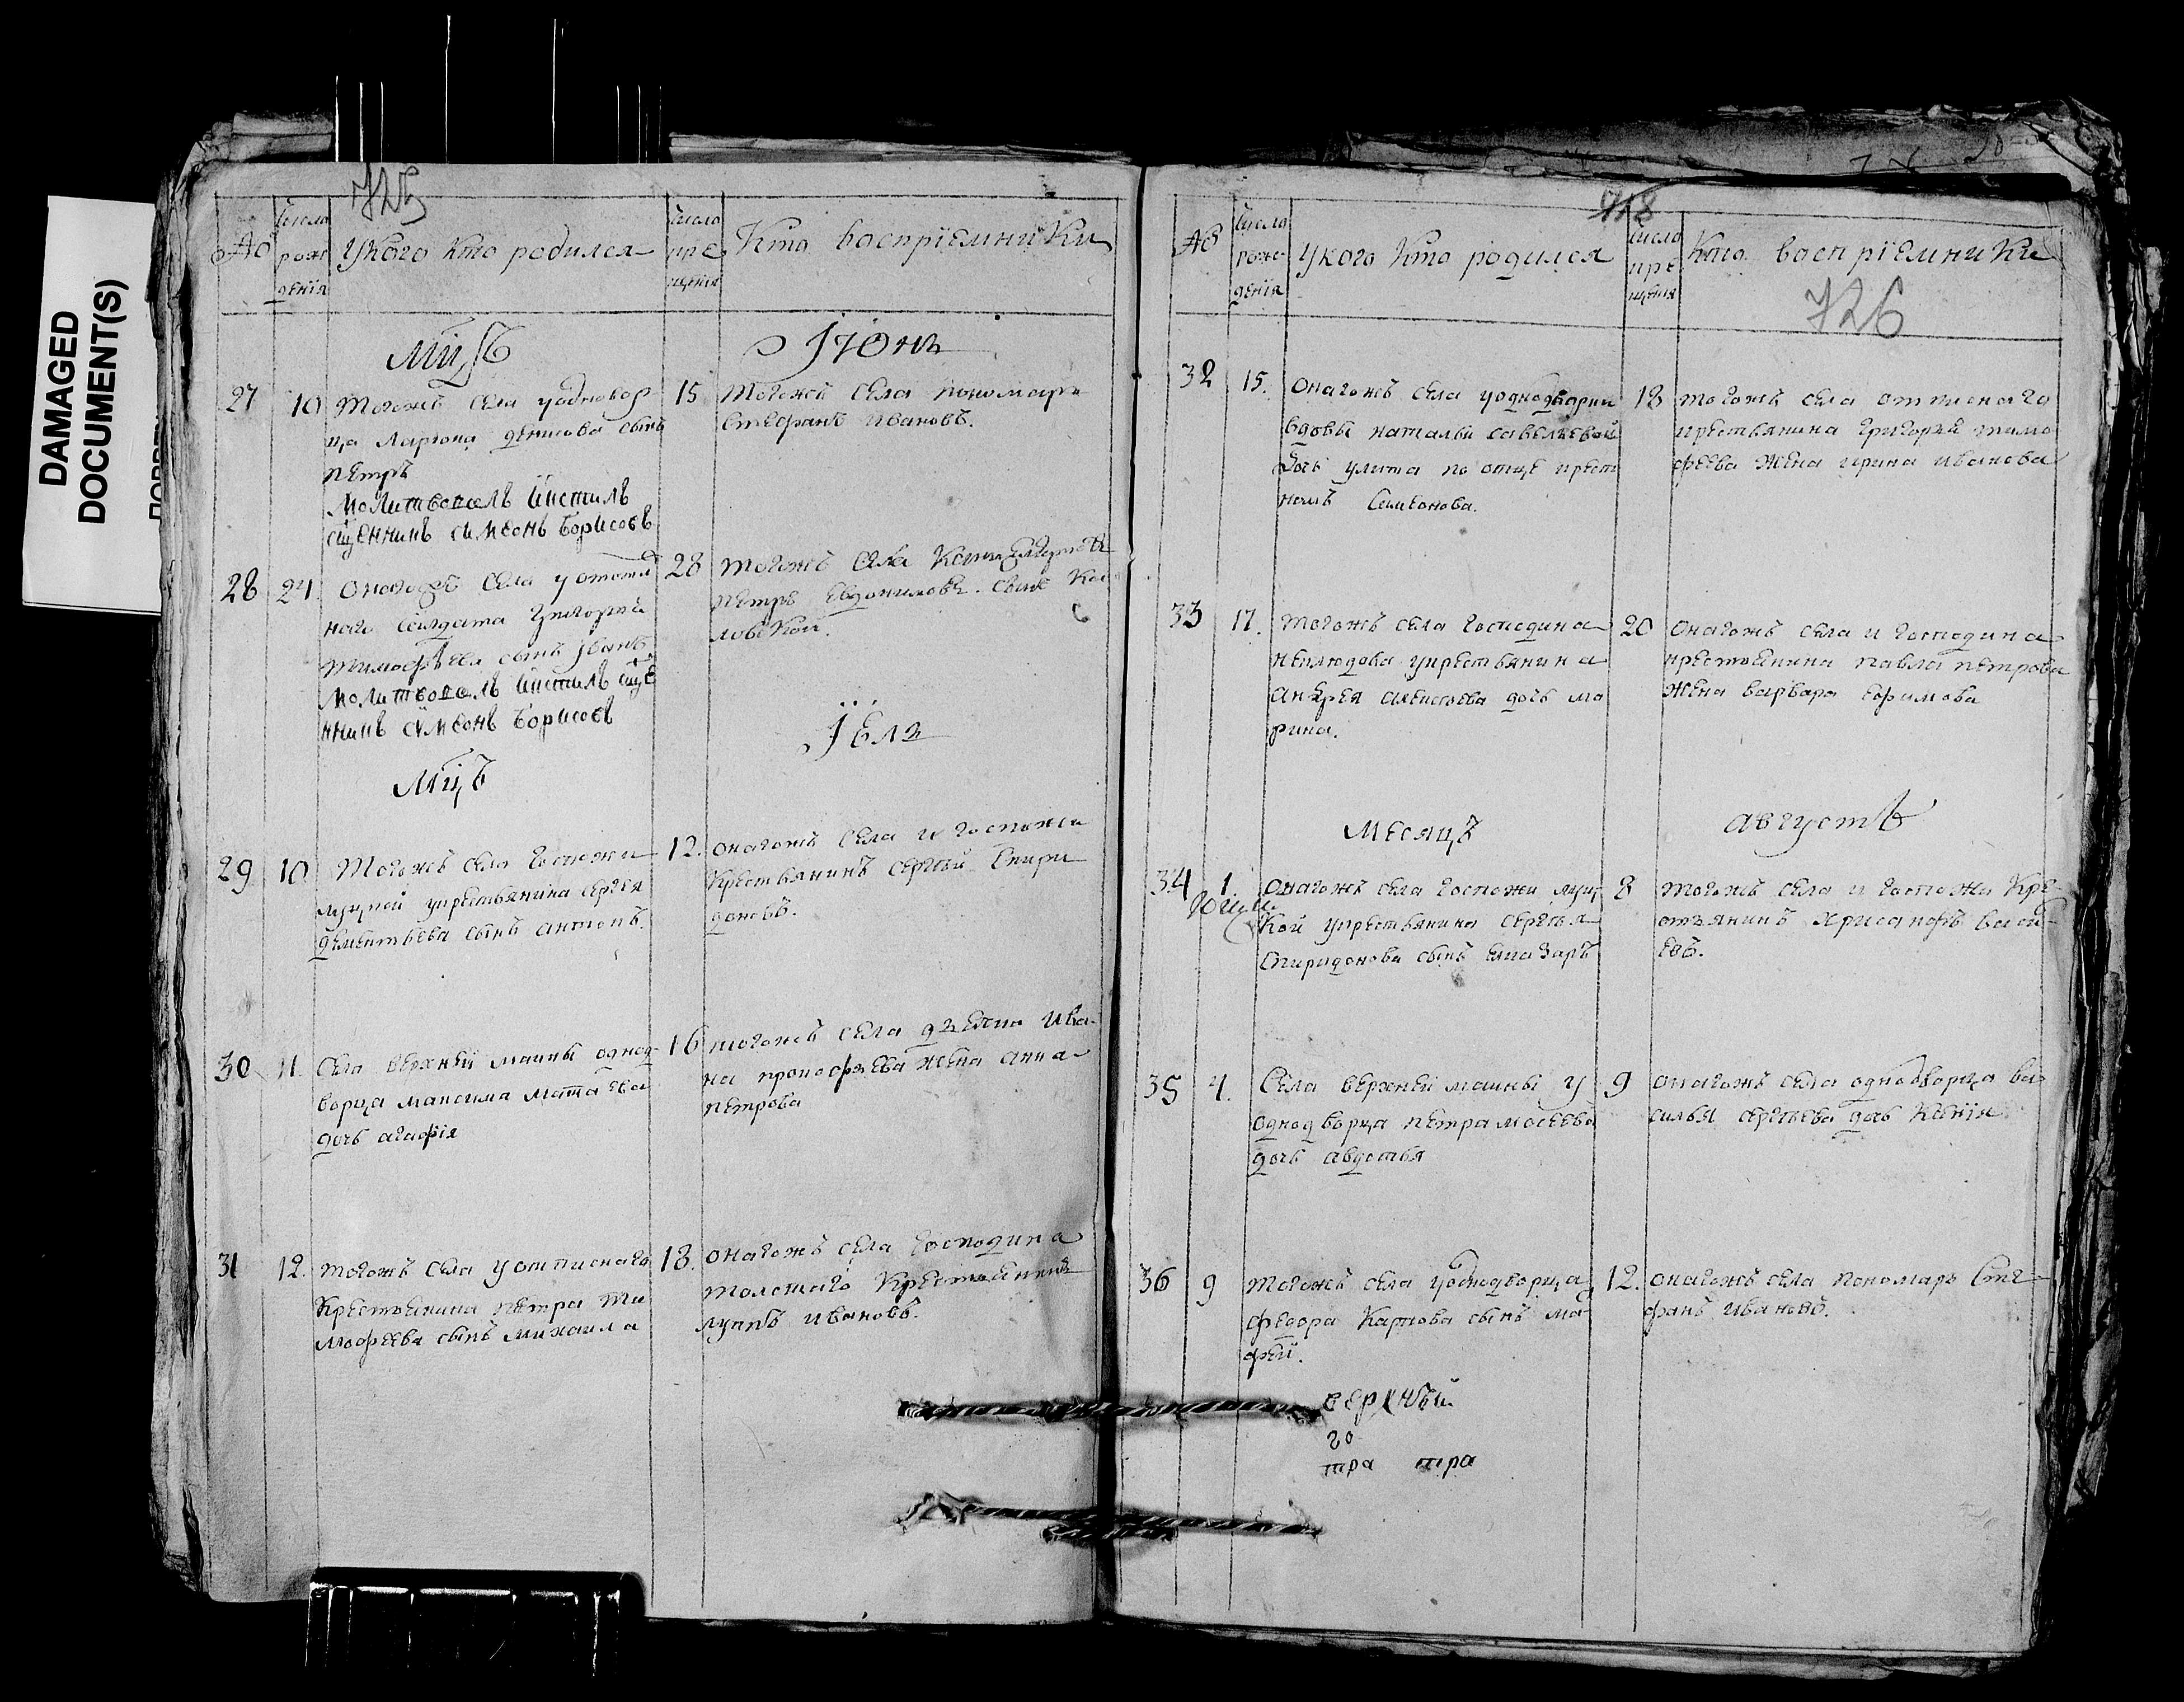 DAMAGED
DOCUMENT(S)
725
№
число рож дения
У кого кто родился
число кре щения
Кто восприемники
Мцъ Июнь
27 10
Тогожъ села уоднодвор
ца Лариона денисова сынъ
петръ
молитвовалъ икстилъ
сщенникъ симеонъ борисовъ
15
Тогожъ села пономарь
стефанъ ивановъ.
28 24.
Оногожъ села уотстав
наго солдата григорья
тимофеева сынъ Iванъ
молитвовалъ икстилъ сще
нникъ симеонъ борисовъ
28
Тогожъ села
петръ Евдокимовъ сынъ
Мцъ Iюль
29 10
Тогожъ села госпожи
укрестьянина сергея
дементьева сынъ антонъ.
12.
оногожъ села и госпожи
крестьянинъ сергѣй спири
доновъ.
30 11.
Села верхней маины однод
ворца максима
дочь агафiя
16
тогожъ села дьячка ива
на прокофьева жена анна
петрова
31 12.
тогожъ села уотписнаго
крестьянина петра ти
мофеева сынъ михаила
18.
оногожъ села господина
толстаго крестьянинъ
лупъ ивановъ.
718
№
число рож дения
У кого кто родился
число кре щения
Кто восприемники
726
32 15.
Оногожъ села уоднодворки
вдовы натальи савельевой
дочь улита по отце крест
номъ Семенова.
18
тогожъ села отписнаго
крестьянина григорья тимо
феева жена ирина иванова
33 17.
тогожъ села господина
неплюдова укрестьянина
андрея алексеева дочь ма
рина.
20
оногожъ села и господина
крестьянина павла петрова
жена варвара ефимова
Месяцъ августъ
34 1.
Оногожъ села госпожи луц
кой укрестьянина сергея
спиридонова сынъ елиазаръ
8
тогожъ села и госпожи кре
стьянинъ хрисанфъ василь
евъ.
35 4.
Села верхней маины у
однодворца петра мосеева
дочь авдотья
9
оногожъ села однодворца ва
силья сергеева дочь ксенiя
36 9
тогожъ села уоднодворца
федора карпова сынъ мат
фей.
12.
оногожъ села пономарь сте
фанъ ивановъ.
верхный
го
тра тра